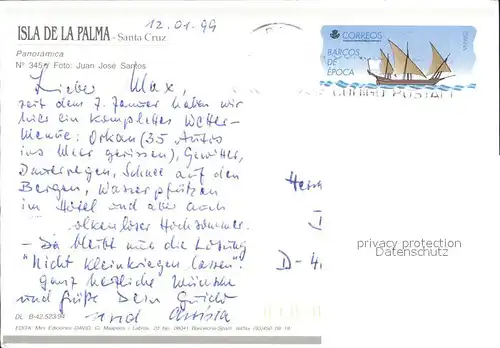 12.01.99
ISLA DE LA PALMA - Santa Cruz
Panorámica
Nº 345 Foto: Juan José Santos
CORREOS
ESPAÑA
BARCOS
DE
EPOCA
Lieber Max,
seit dem 7. Januar haben wir
hier ein komplettes Wetter-
Menue: Orkan (35 Autos
ins Meer gerissen), Gewitter,
Dauerregen, Schnee auf den
Bergen, Wasserpfützen
im Hotel und aber auch
wolkenloser Hochsommer.
- Da bleibt nur die Losung
"Nicht kleinkriegen lassen".
Ganz herzliche Wünsche
und Grüße Dein Guido
und
Herrn
D-4
privacy protection
Datenschutz
DL B-42.523/94
EDITA: Mini Ediciones DAVID, C/.
08041 Barcelona-Spain